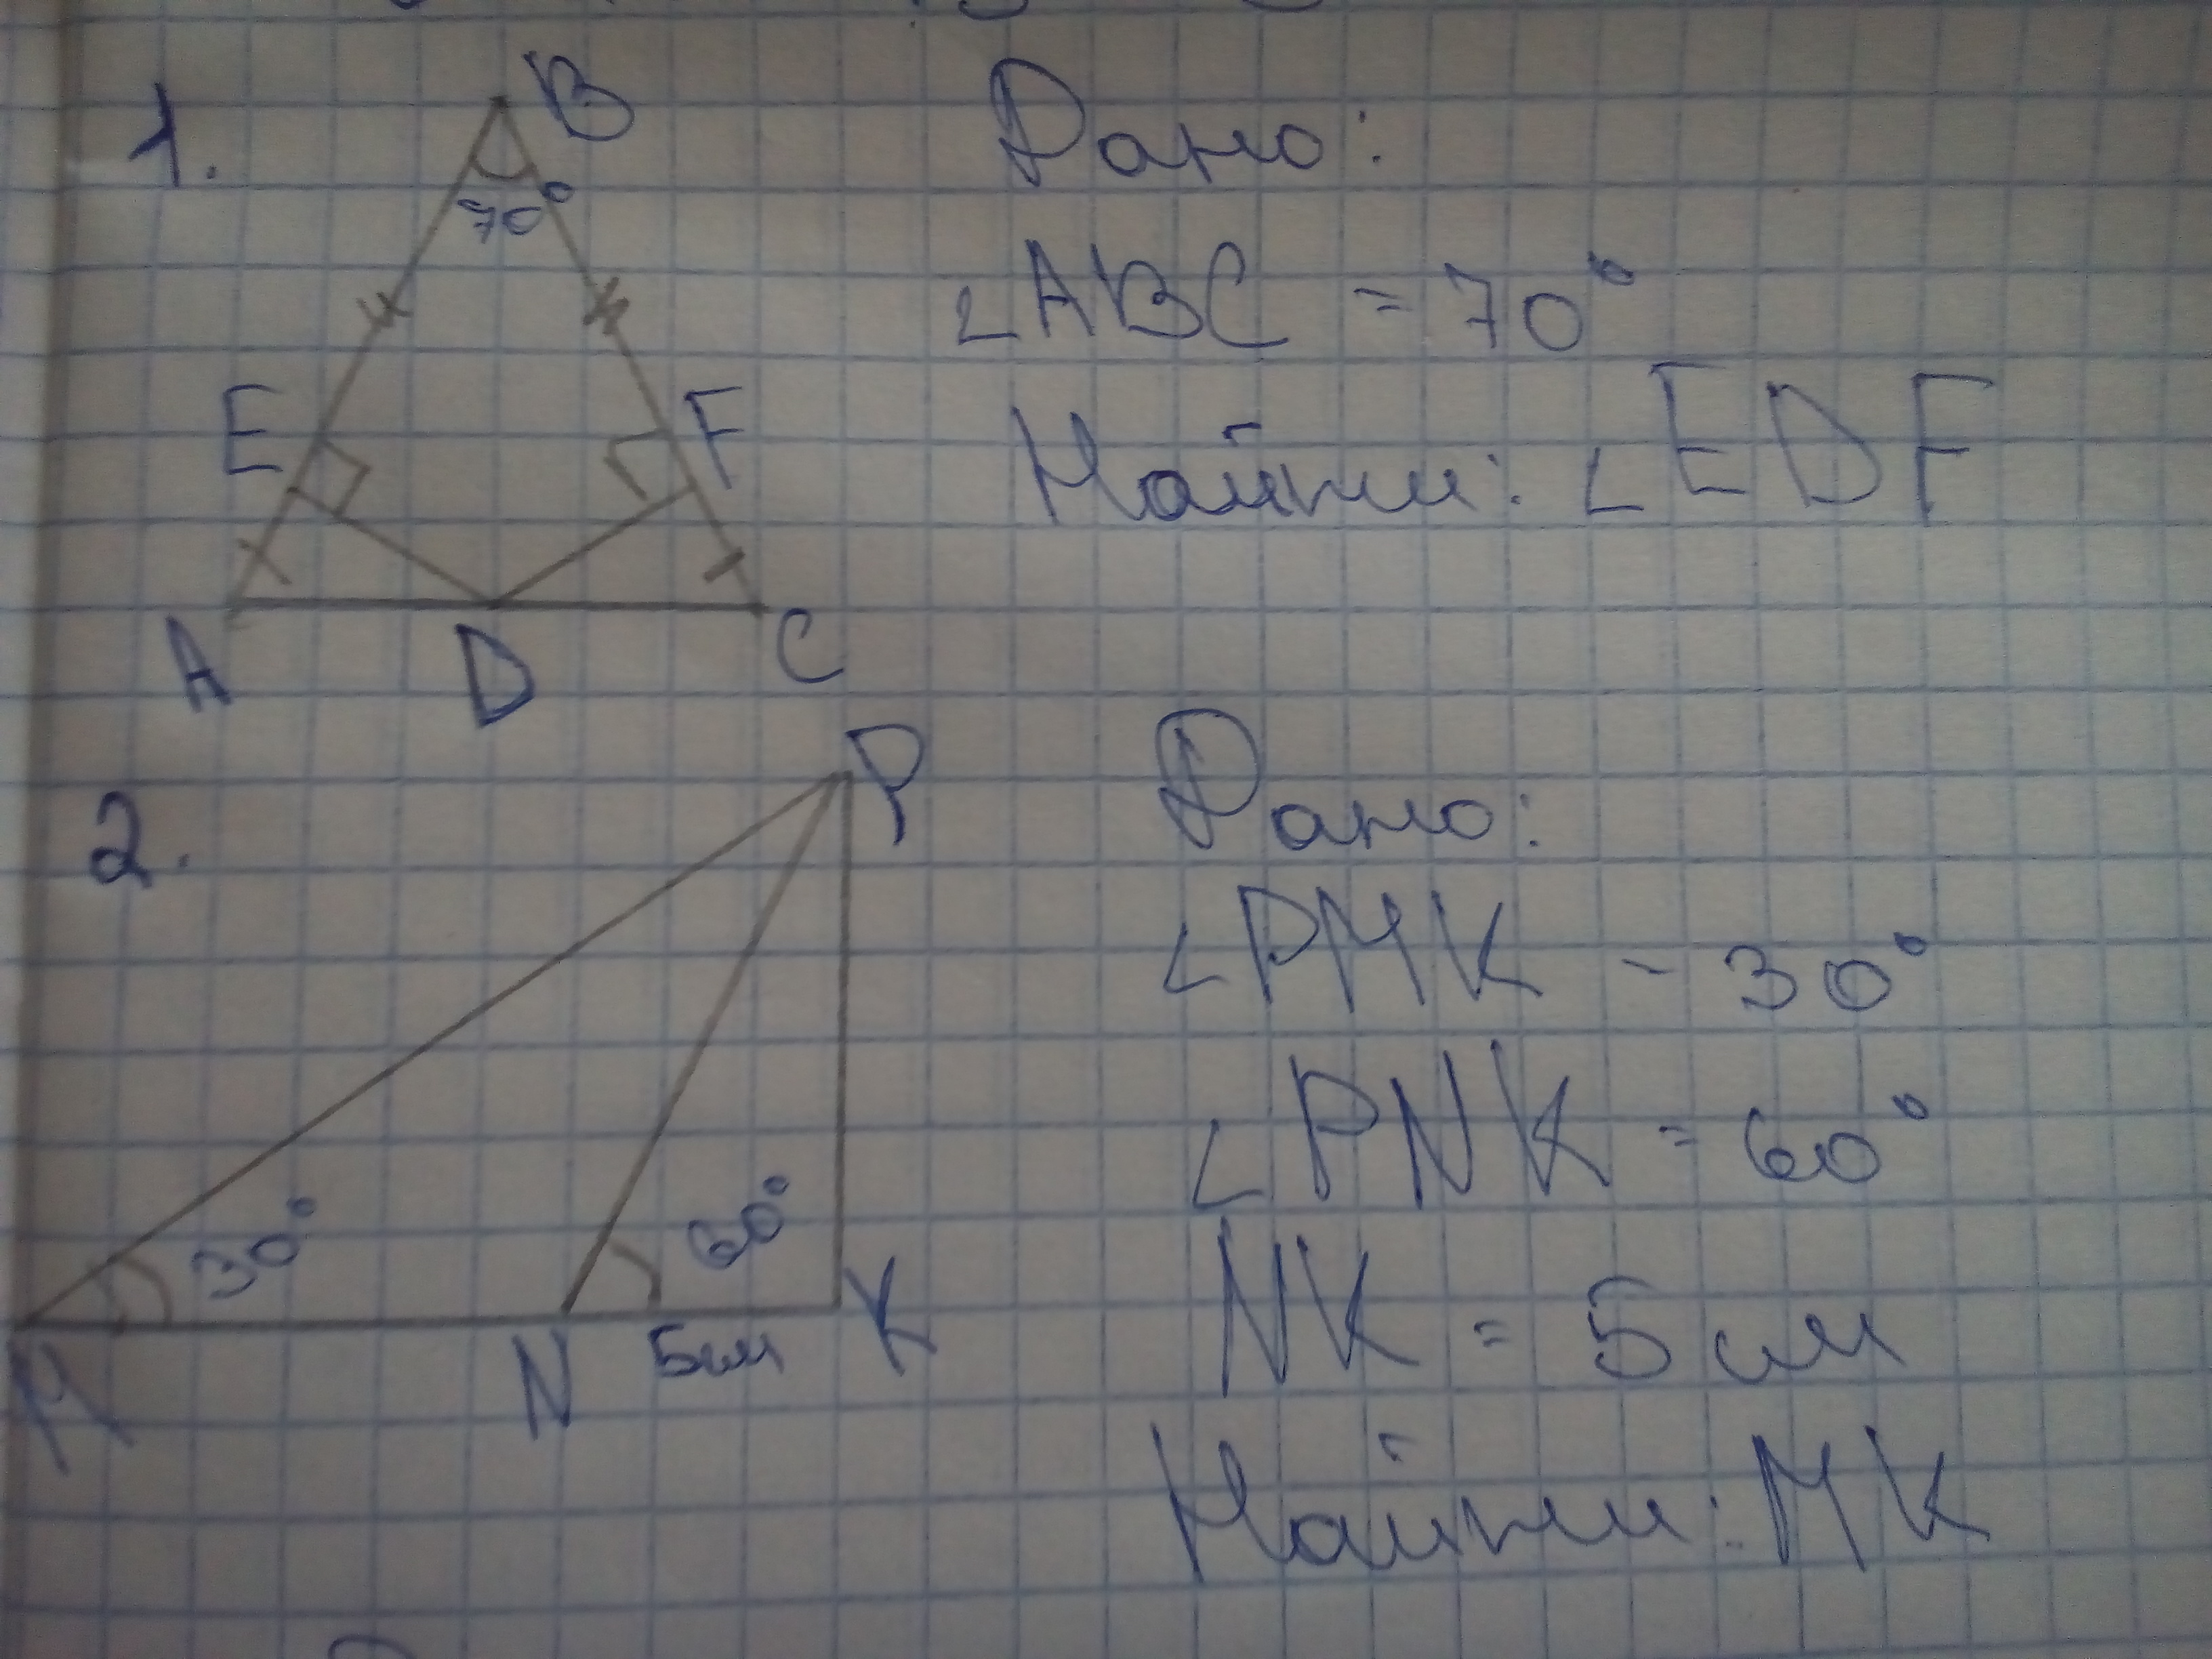 1.
B
70°
E
F
A
D
C
Дано:
∠ABC = 70°
Найти: ∠EDF
2.
P
30°
60°
M
N
5см
K
Дано:
∠PMK - 30°
∠PNK = 60°
NK = 5 см
Найти: MK